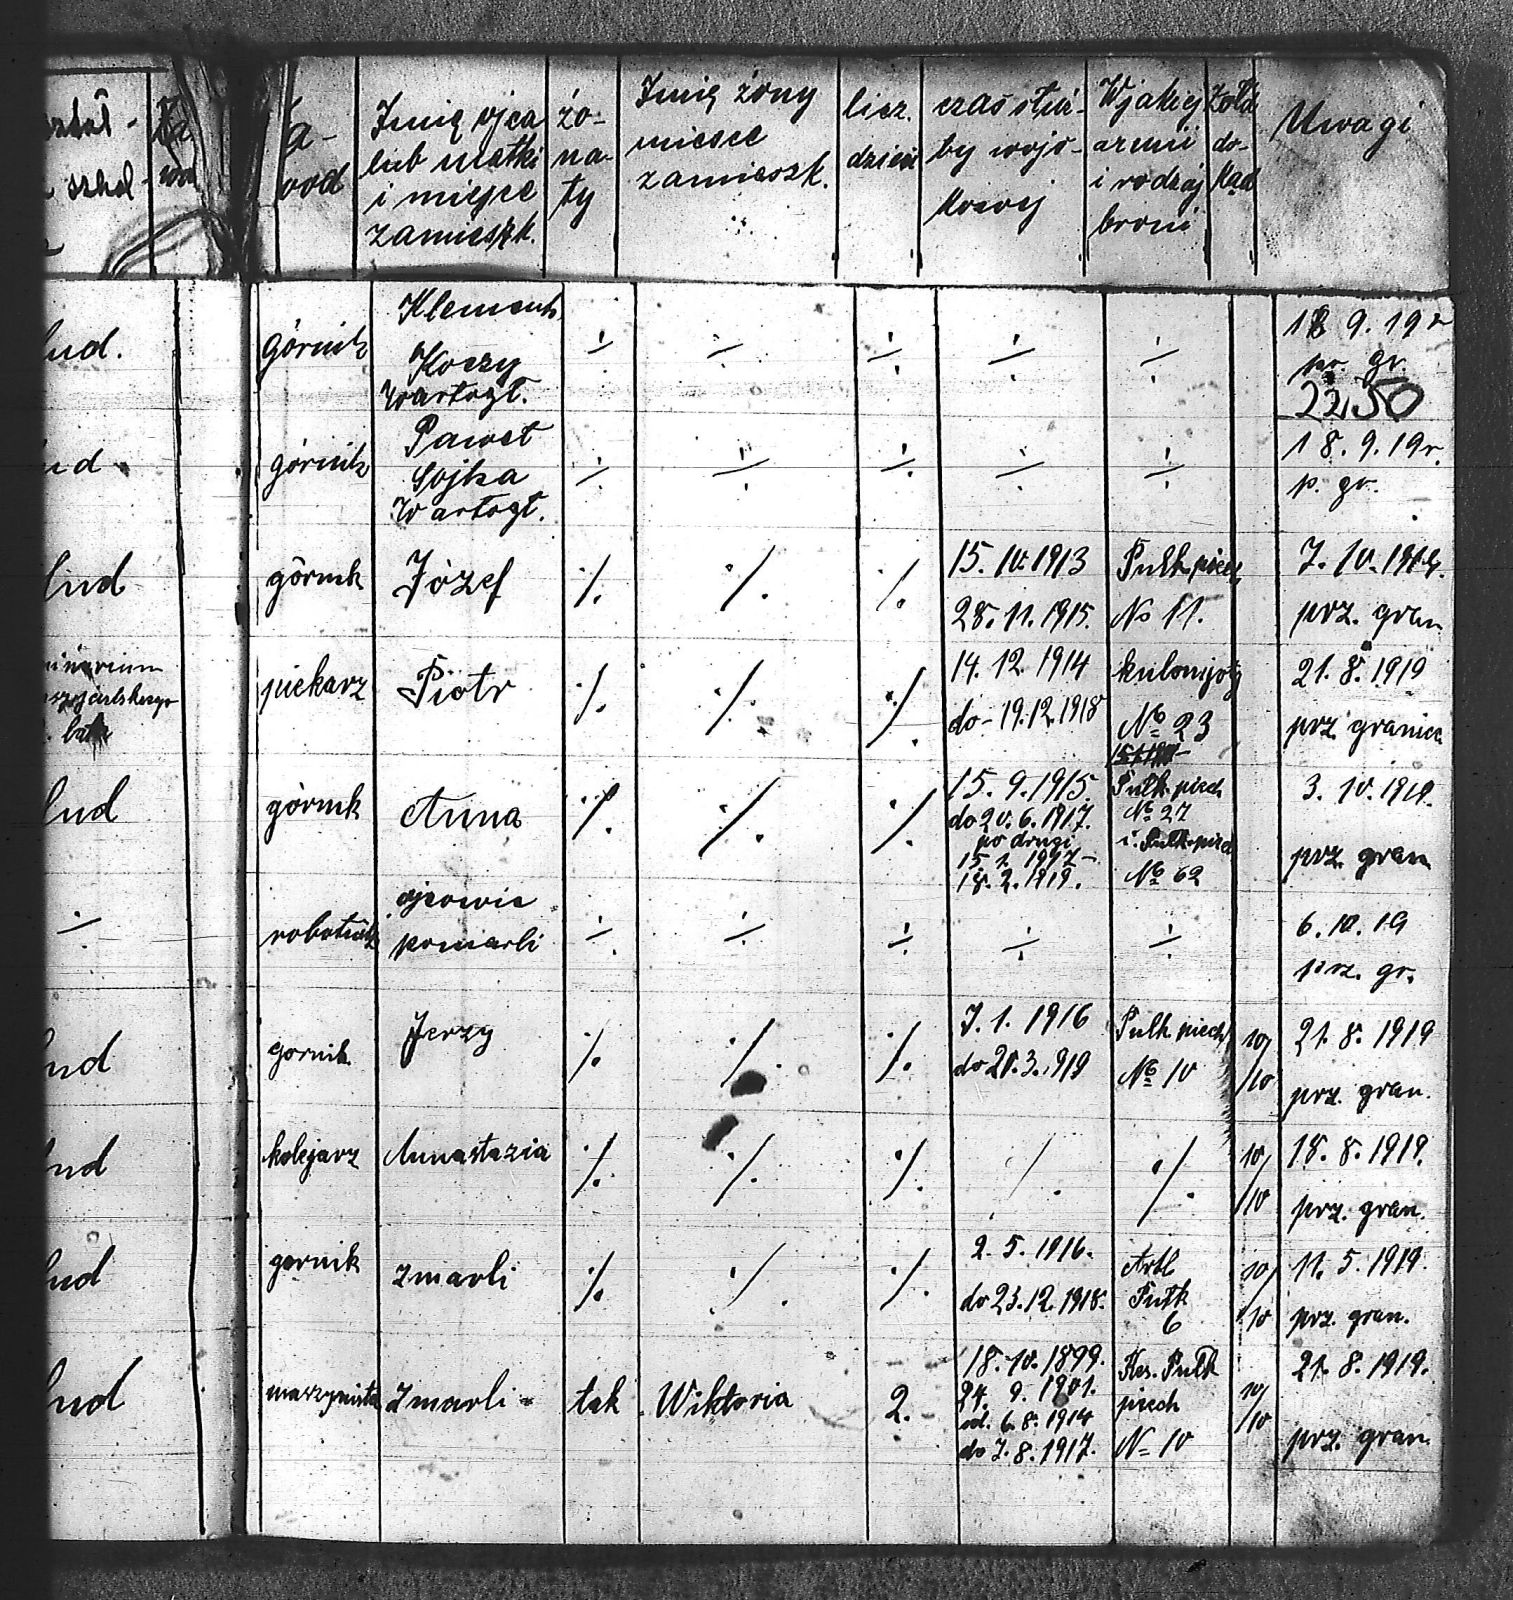 Za-
wod
Imię ojca
lub matki
i miejsce
zamieszk.
żo-
na-
ty
Imię żony
miesce
zamieszk.
licz.
dzieci
czas służ-
by wojs-
kowej
W jakiej
armii
i rodzaj
broni
Żołd
do-
kąd
Uwagi
lud.
górnik
Klemens
Koczy
Wartogł.
÷ ÷ ÷ ÷ ÷
18 9. 19 r
pr. gr.
22,50
górnik
Paweł
Sojka
Wartogł.
÷ ÷ ÷ ÷ ÷
18. 9. 19 r.
p. gr.
lud
górnik
Józef
·/. ·/. ·/.
15. 10. 1913
28. 11. 1915.
Pułk piech
No 11.
7. 10. 1919.
prz. gran
piekarz
Piotr
·/. ·/. ·/.
14. 12. 1914
do - 19. 12. 1918
kulomjoty
No 23
21. 8. 1919
prz granica
lud
górnik
Anna
·/. ·/. ·/.
15. 9. 1915.
do 20. 6. 1917.
po drugi
15. 1. 1917 -
18. 2. 1919.
Pułk piech
No 27
i. Pułk piech
No 62
3. 10. 1919.
prz. gran
÷
robotnik
ojcowie
pomarli
÷ ÷ ÷ ÷ ÷
6. 10. 19
prz. gr.
lud
gornik
Jerzy
·/. ·/. ·/.
7. 1. 1916
do 20. 3. 1919
Pułk piech
No 10
10/
/10
21. 8. 1919
prz. gran.
lud
kolejarz
Annastazia
·/. ·/. ·/. /. ·/.
10/
/10
18. 8. 1919.
prz. gran.
lud
gornik
zmarli
·/. ·/. ·/.
2. 5. 1916.
do 23. 12. 1918.
Artl
Pułk
6
10/
10
11. 5. 1919.
prz. gran.
lud
maszynista
zmarli -
tak
Wiktoria
2.
18. 10. 1899.
24. 9. 1901.
od. 6. 8. 1914
do 7. 8. 1917.
Res. Pułk
piech
No 10
10/
/10
21. 8. 1919.
prz. gran.